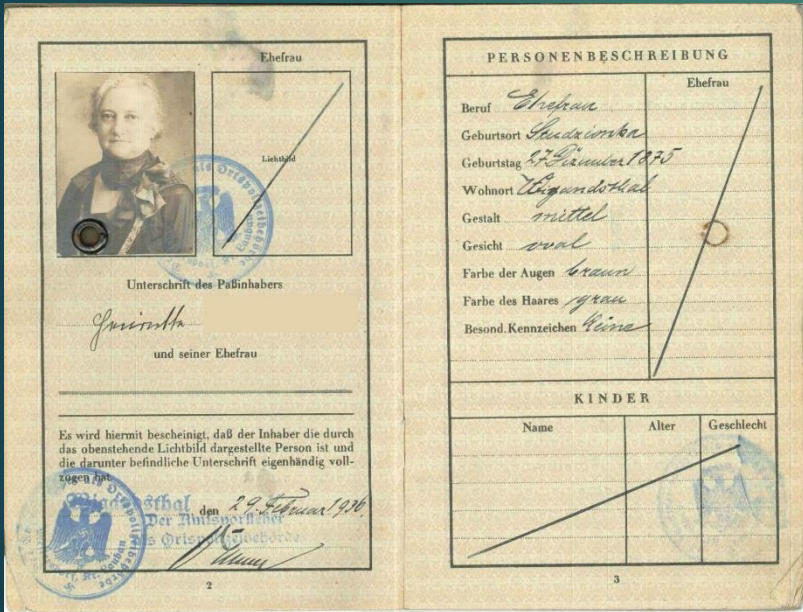 Ehefrau
Lichtbild
Unterschrift des Paßinhabers
Henriette
und seiner Ehefrau
Es wird hiermit bescheinigt, daß der Inhaber die durch
das obenstehende Lichtbild dargestellte Person ist und
die darunter befindliche Unterschrift eigenhändig voll-
zogen hat.
Wigandsthal den 29. Februar 1936
Der Amtsvorsteher
als Ortspolizeibehörde
2
PERSONENBESCHREIBUNG
Ehefrau
Beruf Ehefrau
Geburtsort Studzionka
Geburtstag 27. Dezember 1875
Wohnort Wigandsthal
Gestalt mittel
Gesicht oval
Farbe der Augen braun
Farbe des Haares grau
Besond. Kennzeichen Keine
KINDER
Name Alter Geschlecht
3